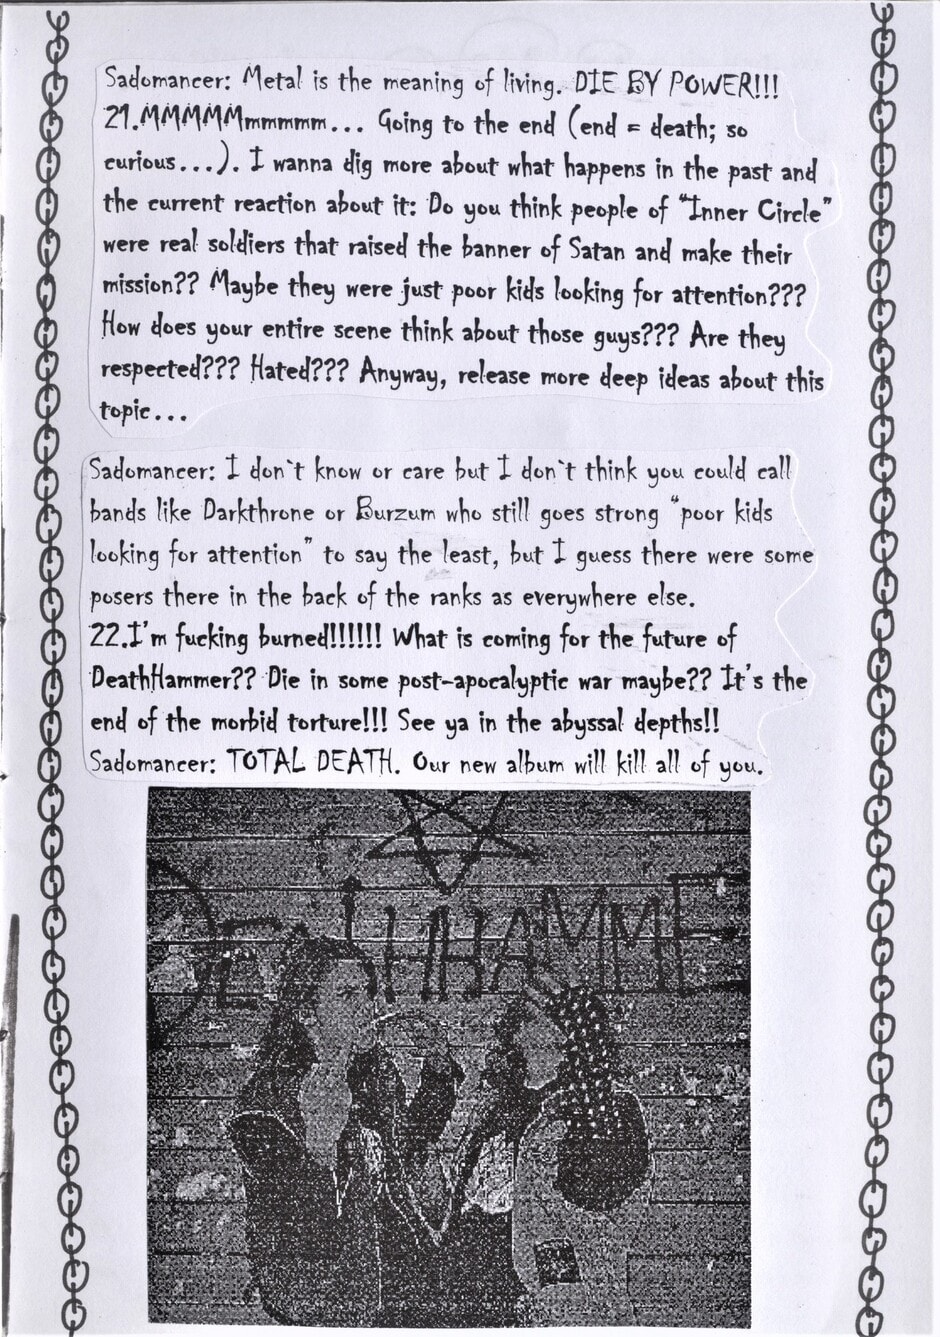 Sadomancer: Metal is the meaning of living. DIE BY POWER!!!
21.MMMMMmmmmm... Going to the end (end = death; so
curious...). I wanna dig more about what happens in the past and
the current reaction about it: Do you think people of “Inner Circle”
were real soldiers that raised the banner of Satan and make their
mission?? Maybe they were just poor kids looking for attention???
How does your entire scene think about those guys??? Are they
respected??? Hated??? Anyway, release more deep ideas about this
topic...
Sadomancer: I don`t know or care but I don`t think you could call
bands like Darkthrone or Burzum who still goes strong “poor kids
looking for attention” to say the least, but I guess there were some
posers there in the back of the ranks as everywhere else.
22.I'm fucking burned!!!!!! What is coming for the future of
DeathHammer?? Die in some post-apocalyptic war maybe?? It's the
end of the morbid torture!!! See ya in the abyssal depths!!
Sadomancer: TOTAL DEATH. Our new album will kill all of you.
DEATHHAMME